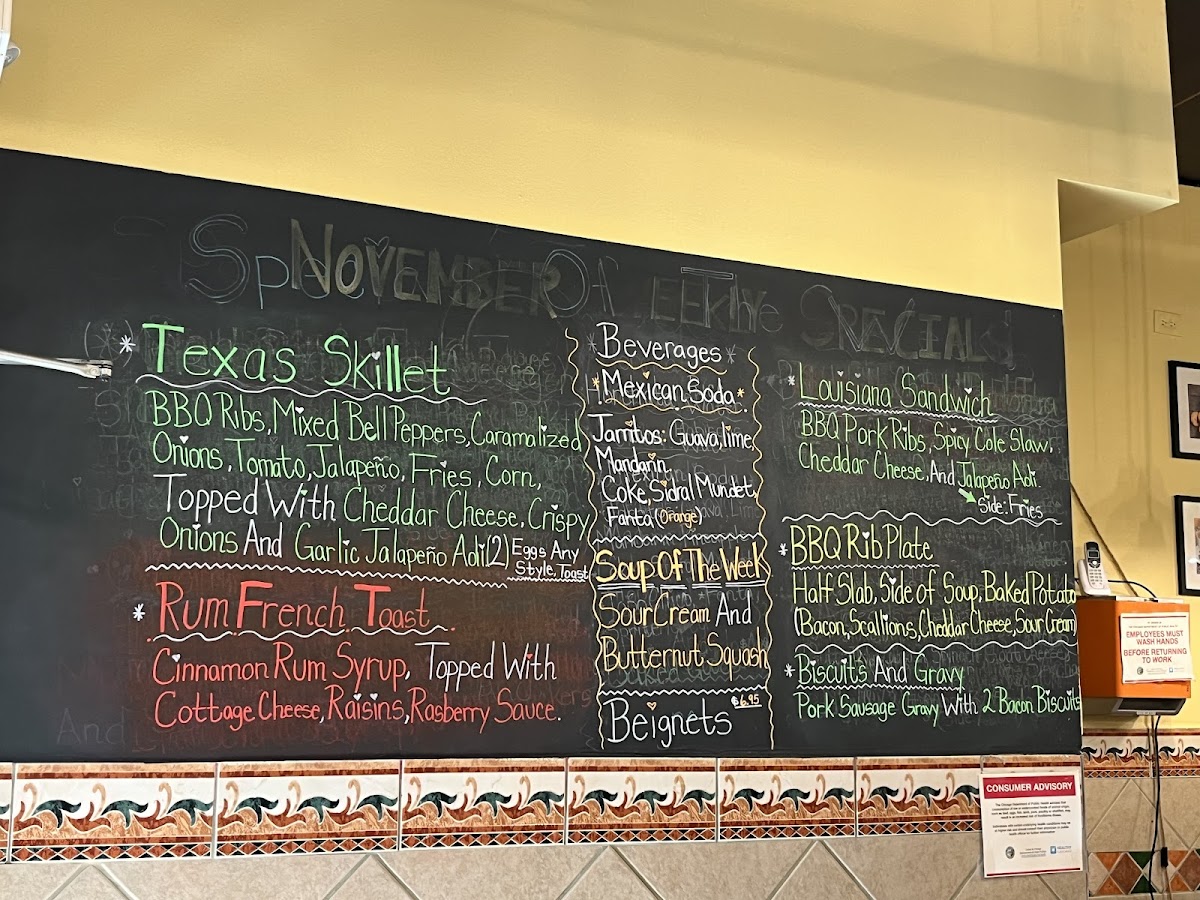 November
Specials Of The
Weekly Specials
* Texas Skillet
BBQ Ribs, Mixed Bell Peppers, Caramalized
Onions, Tomato, Jalapeño, Fries, Corn,
Topped With Cheddar Cheese, Crispy
Onions And Garlic Jalapeño Aoli (2) Eggs Any
Style, Toast
* Rum French Toast
Cinnamon Rum Syrup, Topped With
Cottage Cheese, Raisins, Rasberry Sauce.
* Beverages *
* Mexican Soda *
Jarritos: Guava, lime,
Mandarin
Coke, Sidral Mundet,
Fanta (Orange)
Soup Of The Week
Sour Cream And
Butternut Squash
$6.95
Beignets
* Louisiana Sandwich
BBQ Pork Ribs, Spicy Cole Slaw,
Cheddar Cheese, And Jalapeño Aoli.
Side: Fries
* BBQ Rib Plate
Half Slab, Side of Soup, Baked Potato
(Bacon, Scallions, Cheddar Cheese, Sour Cream)
* Biscuits And Gravy
Pork Sausage Gravy With 2 Bacon Biscuits
EMPLOYEES MUST
WASH HANDS
BEFORE RETURNING
TO WORK
CONSUMER ADVISORY